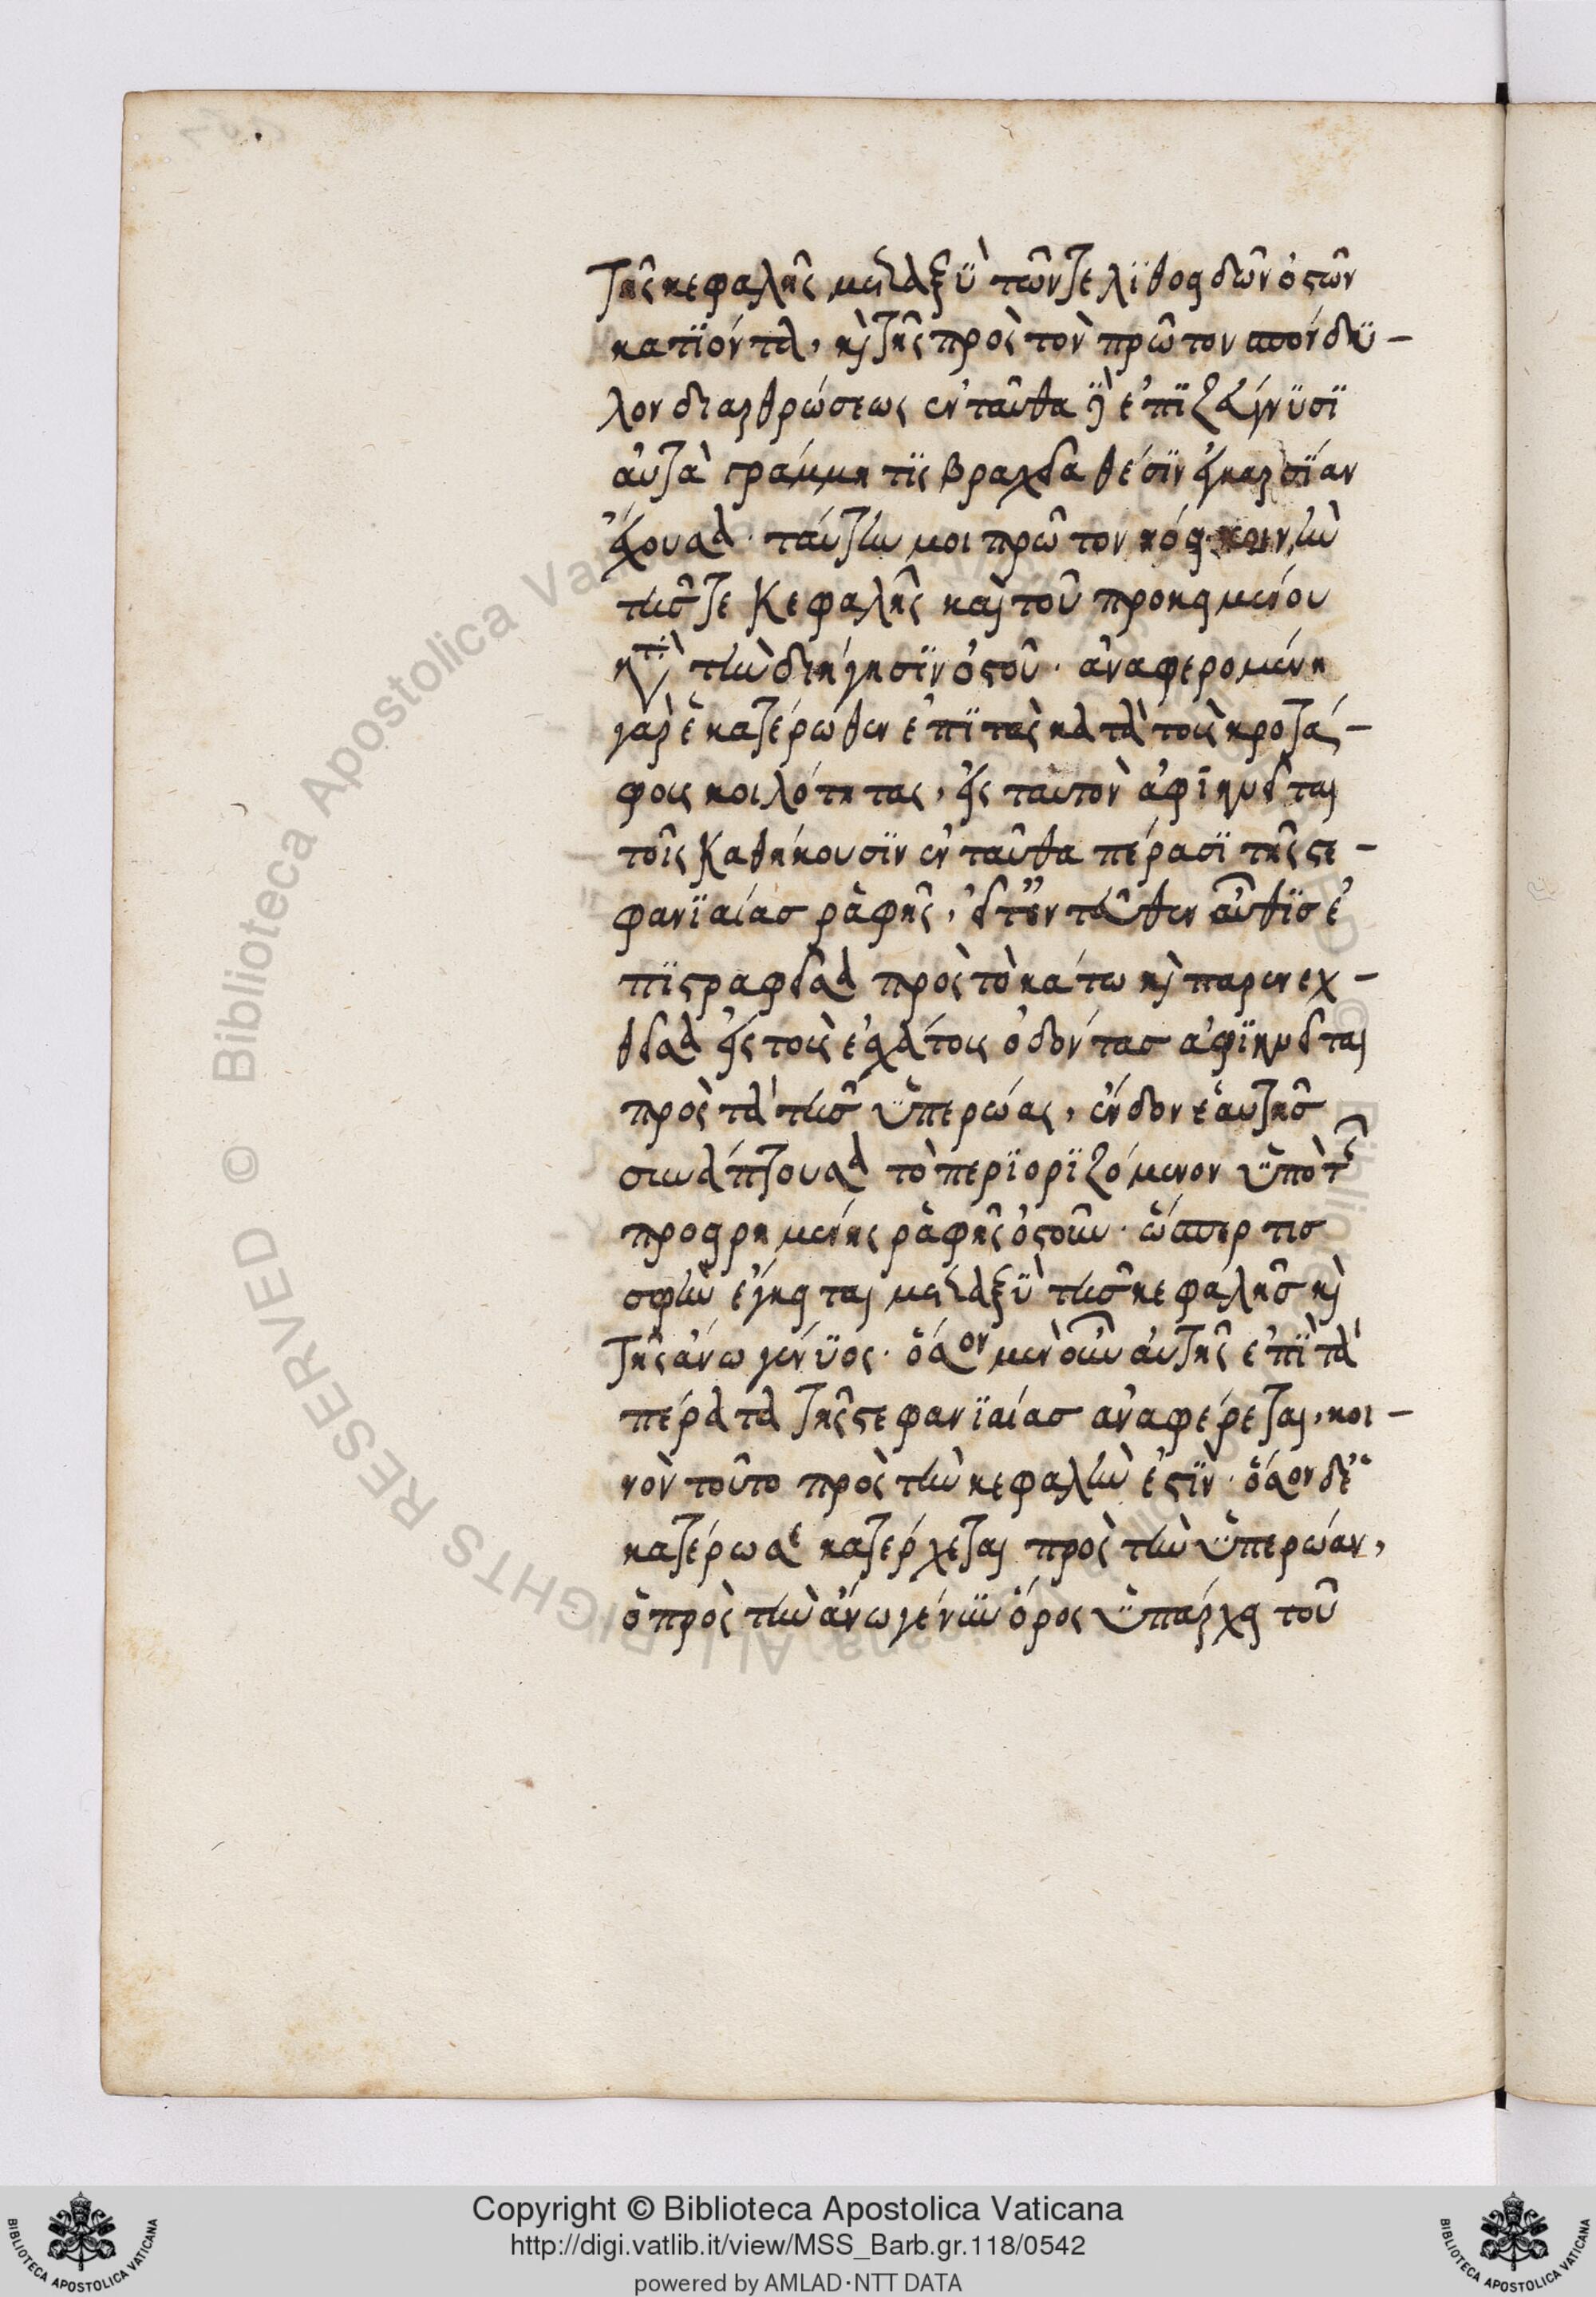 τῆς κεφαλῆς μεταξὺ τῶν τε λιθοειδῶν ὀστῶν
κατιόντα, καὶ τῆς πρὸς τὸν πρῶτον σπόνδυ-
λον διαρθρώσεως ἐνταῦθα ἐπιζεύγνυσι
αὐτὰ γράμμή τις βραχεῖα θέσιν ἐγκαρσίαν
ἔχουσα. ταύτην μοι πρῶτον νόει κοινὴν
τῆς τε Κεφαλῆς καὶ τοῦ προκειμένου
κατὰ τὴν διήγησιν ὀστοῦ. ἀναφερομένη
γὰρ ἑκατέρωθεν ἐπὶ τὰς κατὰ τοὺς κροτά-
φους κοιλότητας, εἰς ταυτὸν ἀφικνεῖται
τοῖς Καθήκουσιν ἐνταῦθα πέρασι τῆς στε-
φανιαίας ῥαφῆς, εἶτ' ἐντεῦθεν αὖθις ἐ
πιστραφεῖσα πρὸς τὸ κάτω καὶ παρενεχ-
θεῖσα εἰς τοὺς ἐσχάτους ὀδόντας ἀφικνεῖται
πρὸς τὰ τῆς ὑπερώας, ἔνδον ἑαυτῆς
συνάπτουσα τὸ περιοριζόμενον ὑπὸ τῆς
προειρημένης ῥαφῆς ὀστοῦν. ὥσπερ τις
σφὴν ἔγκειται μεταξὺ τῆς κεφαλῆς καὶ
τῆς ἄνω γένυος. ὅσον μὲν οὖν αὐτῆς ἐπὶ τὰ
πέρατα τῆς στεφανιαίας ἀναφέρεται, κοι-
νὸν τοῦτο πρὸς τὴν κεφαλήν ἐστιν. ὅσον δὲ
κατέρωσε κατέρχεται πρὸς τὴν ὑπερώαν,
ὃ πρὸς τὴν ἄνω γένυν ὅρος ὑπάρχει τοῦ
Copyright © Biblioteca Apostolica Vaticana
http://digi.vatlib.it/view/MSS_Barb.gr.118/0542
powered by AMLAD·NTT DATA